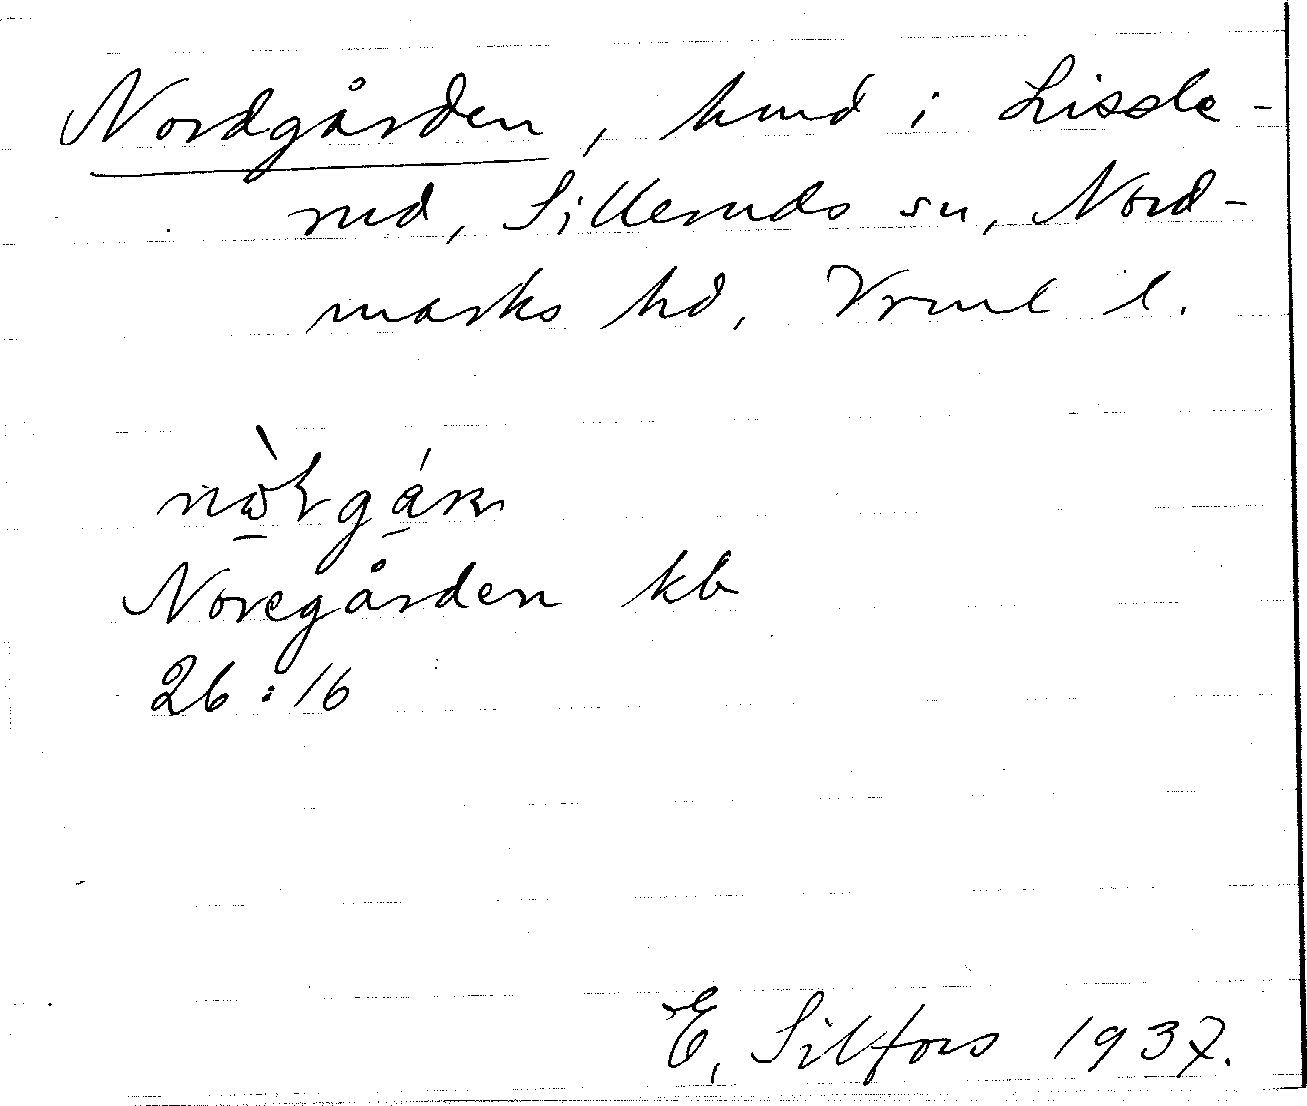 Nordgården, hmd i Lissle-
rud, Silleruds sn, Nord-
marks hd, Vrml l.
Noregården kb
26:16
E. Silfors 1937.